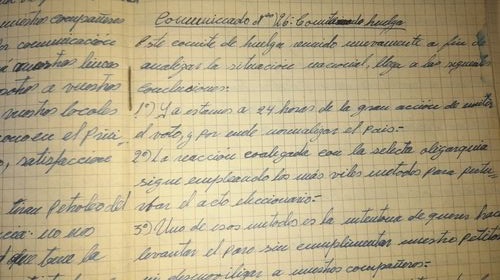 nuestro compañeros
comunicación
nuestras lineas
a vuestros
vuestros locales
en el Prin
satisfaccione
tiran Petroleo del
no no
que tome la
Comunicado Nro 26: Comite de huelga
Este comite de huelga reunido nuevamente a fin de
analizar la situación nacional, llega a las siguiente
Conclusiones:
1º) Ya estamos a 24 horas de la gran acción de emitir
el voto, y por ende normalizar el Pais.=
2º) La reacción coaligada con la selecta oligarquia
sigue empleando los más viles metodos para pertur-
bar el acto eleccionario.=
3º) Uno de esos metodos es la intentona de querer hacer
levantar el paro sin cumplimentar nuestro petitorio
a nuestros compañeros=